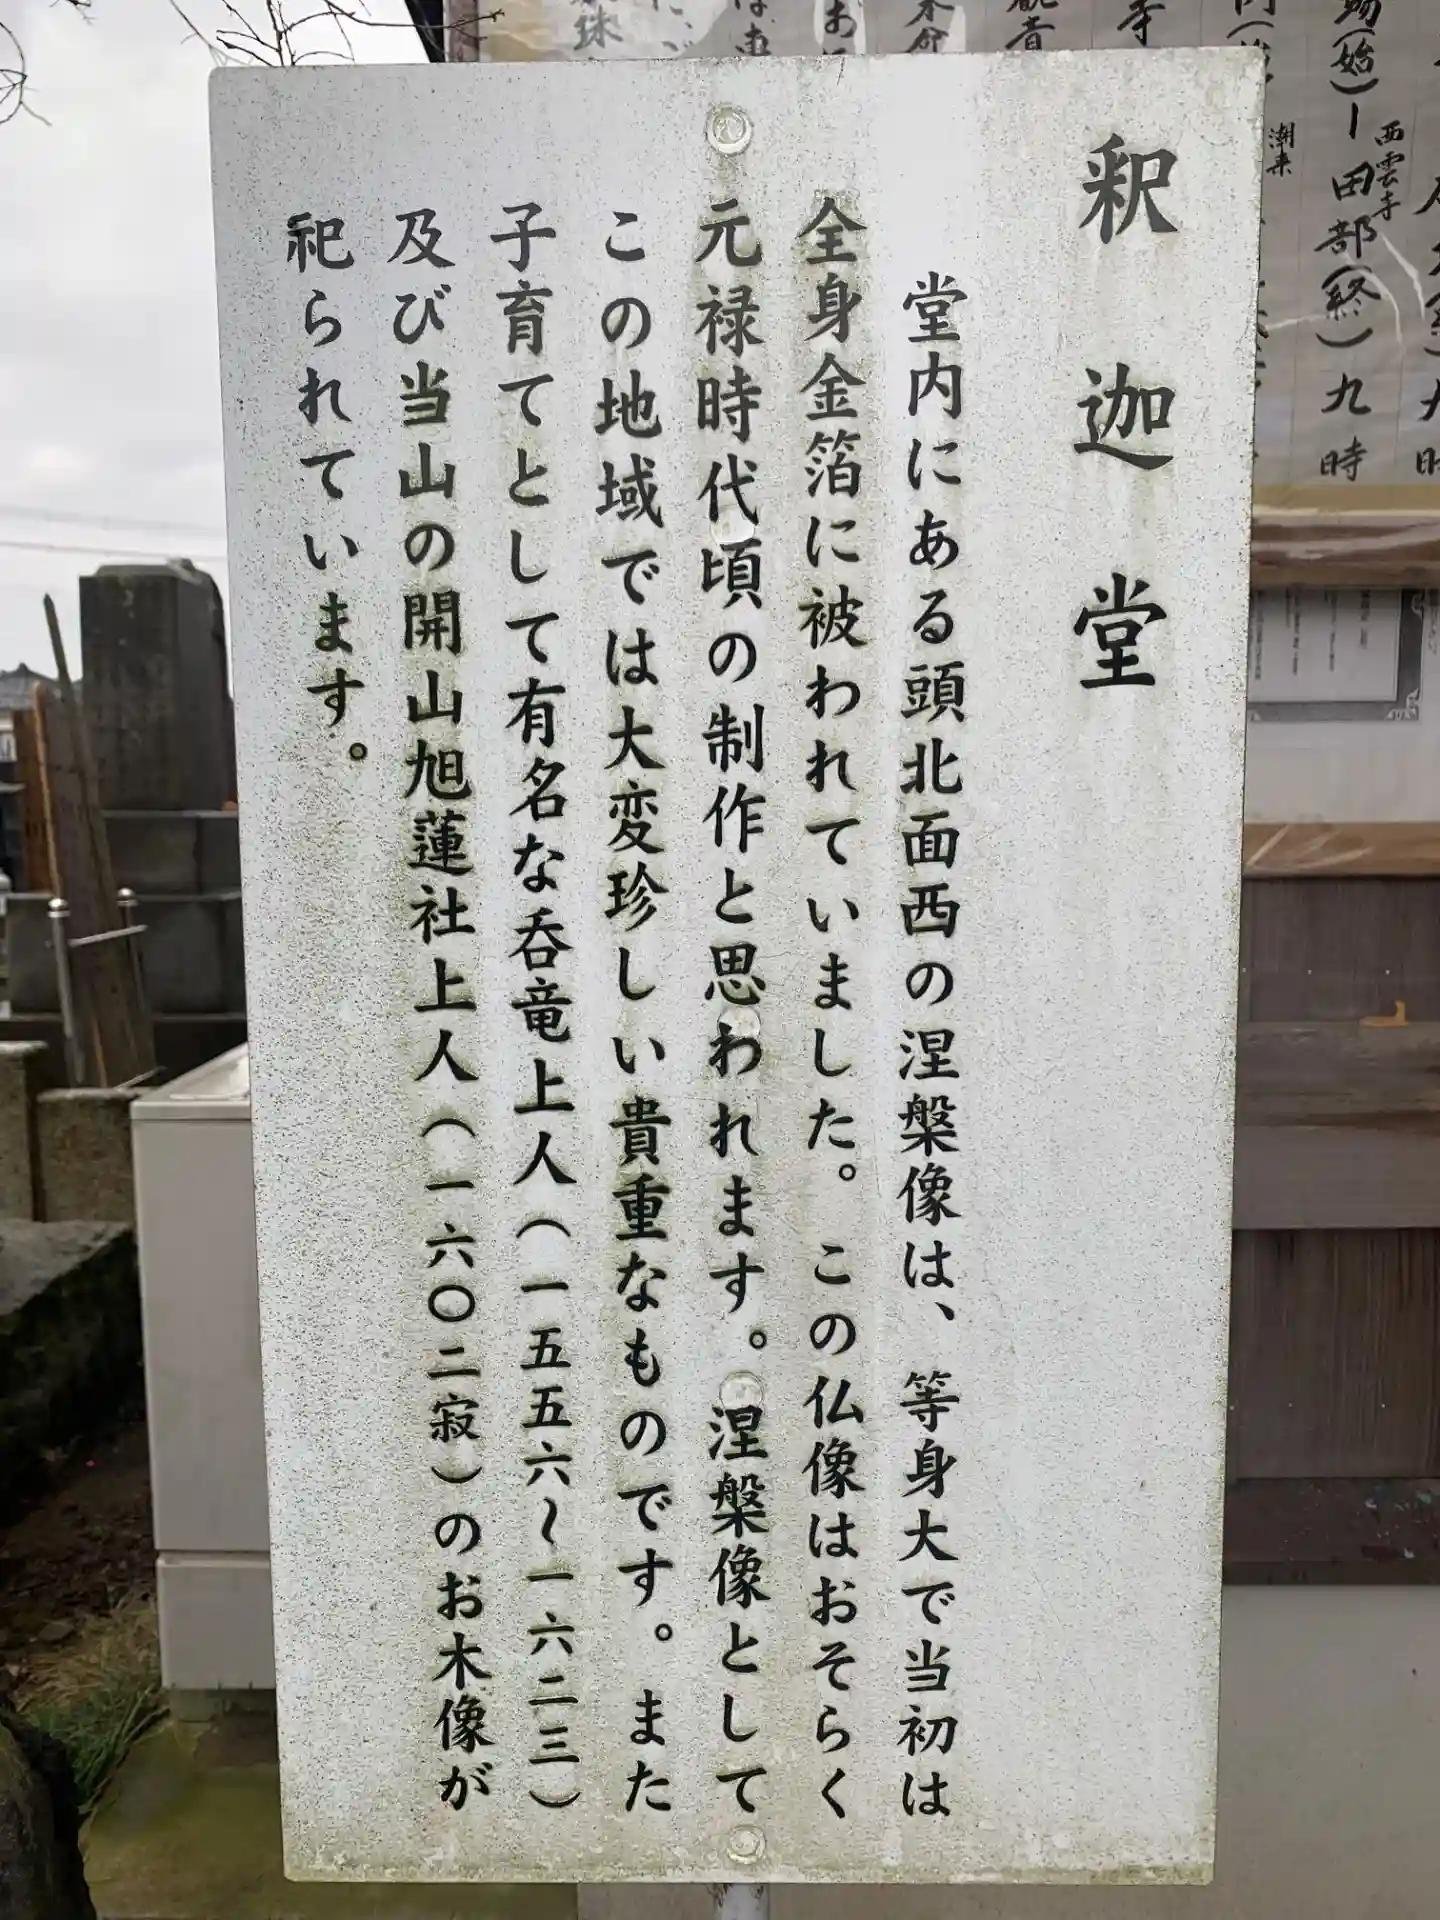 釈迦堂
堂内にある頭北面西の涅槃像は、等身大で当初は
全身金箔に被われていました。この仏像はおそらく
元禄時代頃の制作と思われます。涅槃像として
この地域では大変珍しい貴重なものです。また
子育てとして有名な呑竜上人（一五五六〜一六二三）
及び当山の開山旭蓮社上人（一六〇二寂）のお木像が
祀られています。
潮来
西雲寺
(始)ー田部(終)九時